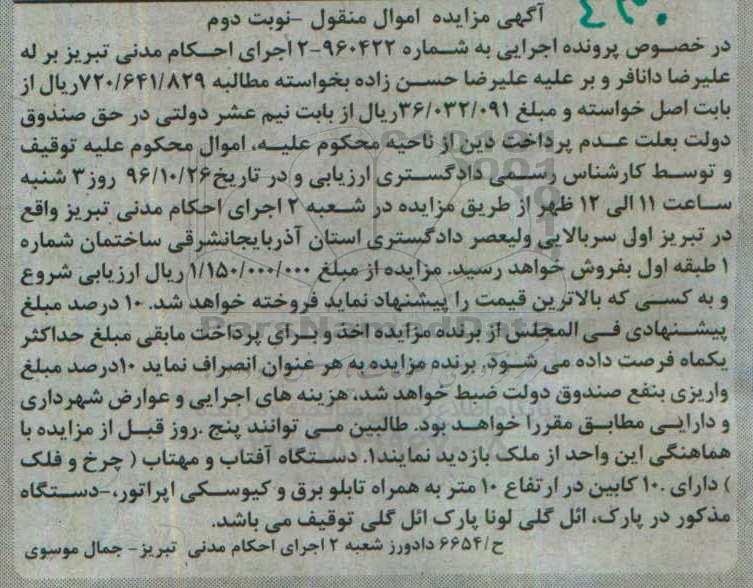 ۴۳۰
آگهی مزایده اموال منقول –نوبت دوم
در خصوص پرونده اجرایی به شماره ۹۶۰۴۲۲-۲ اجرای احکام مدنی تبریز بر له
علیرضا دانافر و بر علیه علیرضا حسن زاده بخواسته مطالبه ۷۲۰/۶۴۱/۸۲۹ریال از
بابت اصل خواسته و مبلغ ۳۶/۰۳۲/۰۹۱ریال از بابت نیم عشر دولتی در حق صندوق
دولت بعلت عدم پرداخت دین از ناحیه محکوم علیه، اموال محکوم علیه توقیف
و توسط کارشناس رسمی دادگستری ارزیابی و در تاریخ۹۶/۱۰/۲۶ روز ۳ شنبه
ساعت ۱۱ الی ۱۲ ظهر از طریق مزایده در شعبه ۲ اجرای احکام مدنی تبریز واقع
در تبریز اول سربالایی ولیعصر دادگستری استان آذربایجانشرقی ساختمان شماره
۱ طبقه اول بفروش خواهد رسید. مزایده از مبلغ ۱/۱۵۰/۰۰۰/۰۰۰ ریال ارزیابی شروع
و به کسی که بالاترین قیمت را پیشنهاد نماید فروخته خواهد شد. ۱۰ درصد مبلغ
پیشنهادی فی المجلس از برنده مزایده اخذ و برای پرداخت مابقی مبلغ حداکثر
یکماه فرصت داده می شود. برنده مزایده به هر عنوان انصراف نماید ۱۰درصد مبلغ
واریزی بنفع صندوق دولت ضبط خواهد شد، هزینه های اجرایی و عوارض شهرداری
و دارایی مطابق مقررا خواهد بود. طالبین می توانند پنج .روز قبل از مزایده با
هماهنگی این واحد از ملک بازدید نمایند۱. دستگاه آفتاب و مهتاب ( چرخ و فلک
) دارای .۱۰ کابین در ارتفاع ۱۰ متر به همراه تابلو برق و کیوسکی اپراتور،–دستگاه
مذکور در پارک، ائل گلی لونا پارک ائل گلی توقیف می باشد.
ح/۶۶۵۴ دادورز شعبه ۲ اجرای احکام مدنی تبریز- جمال موسوی